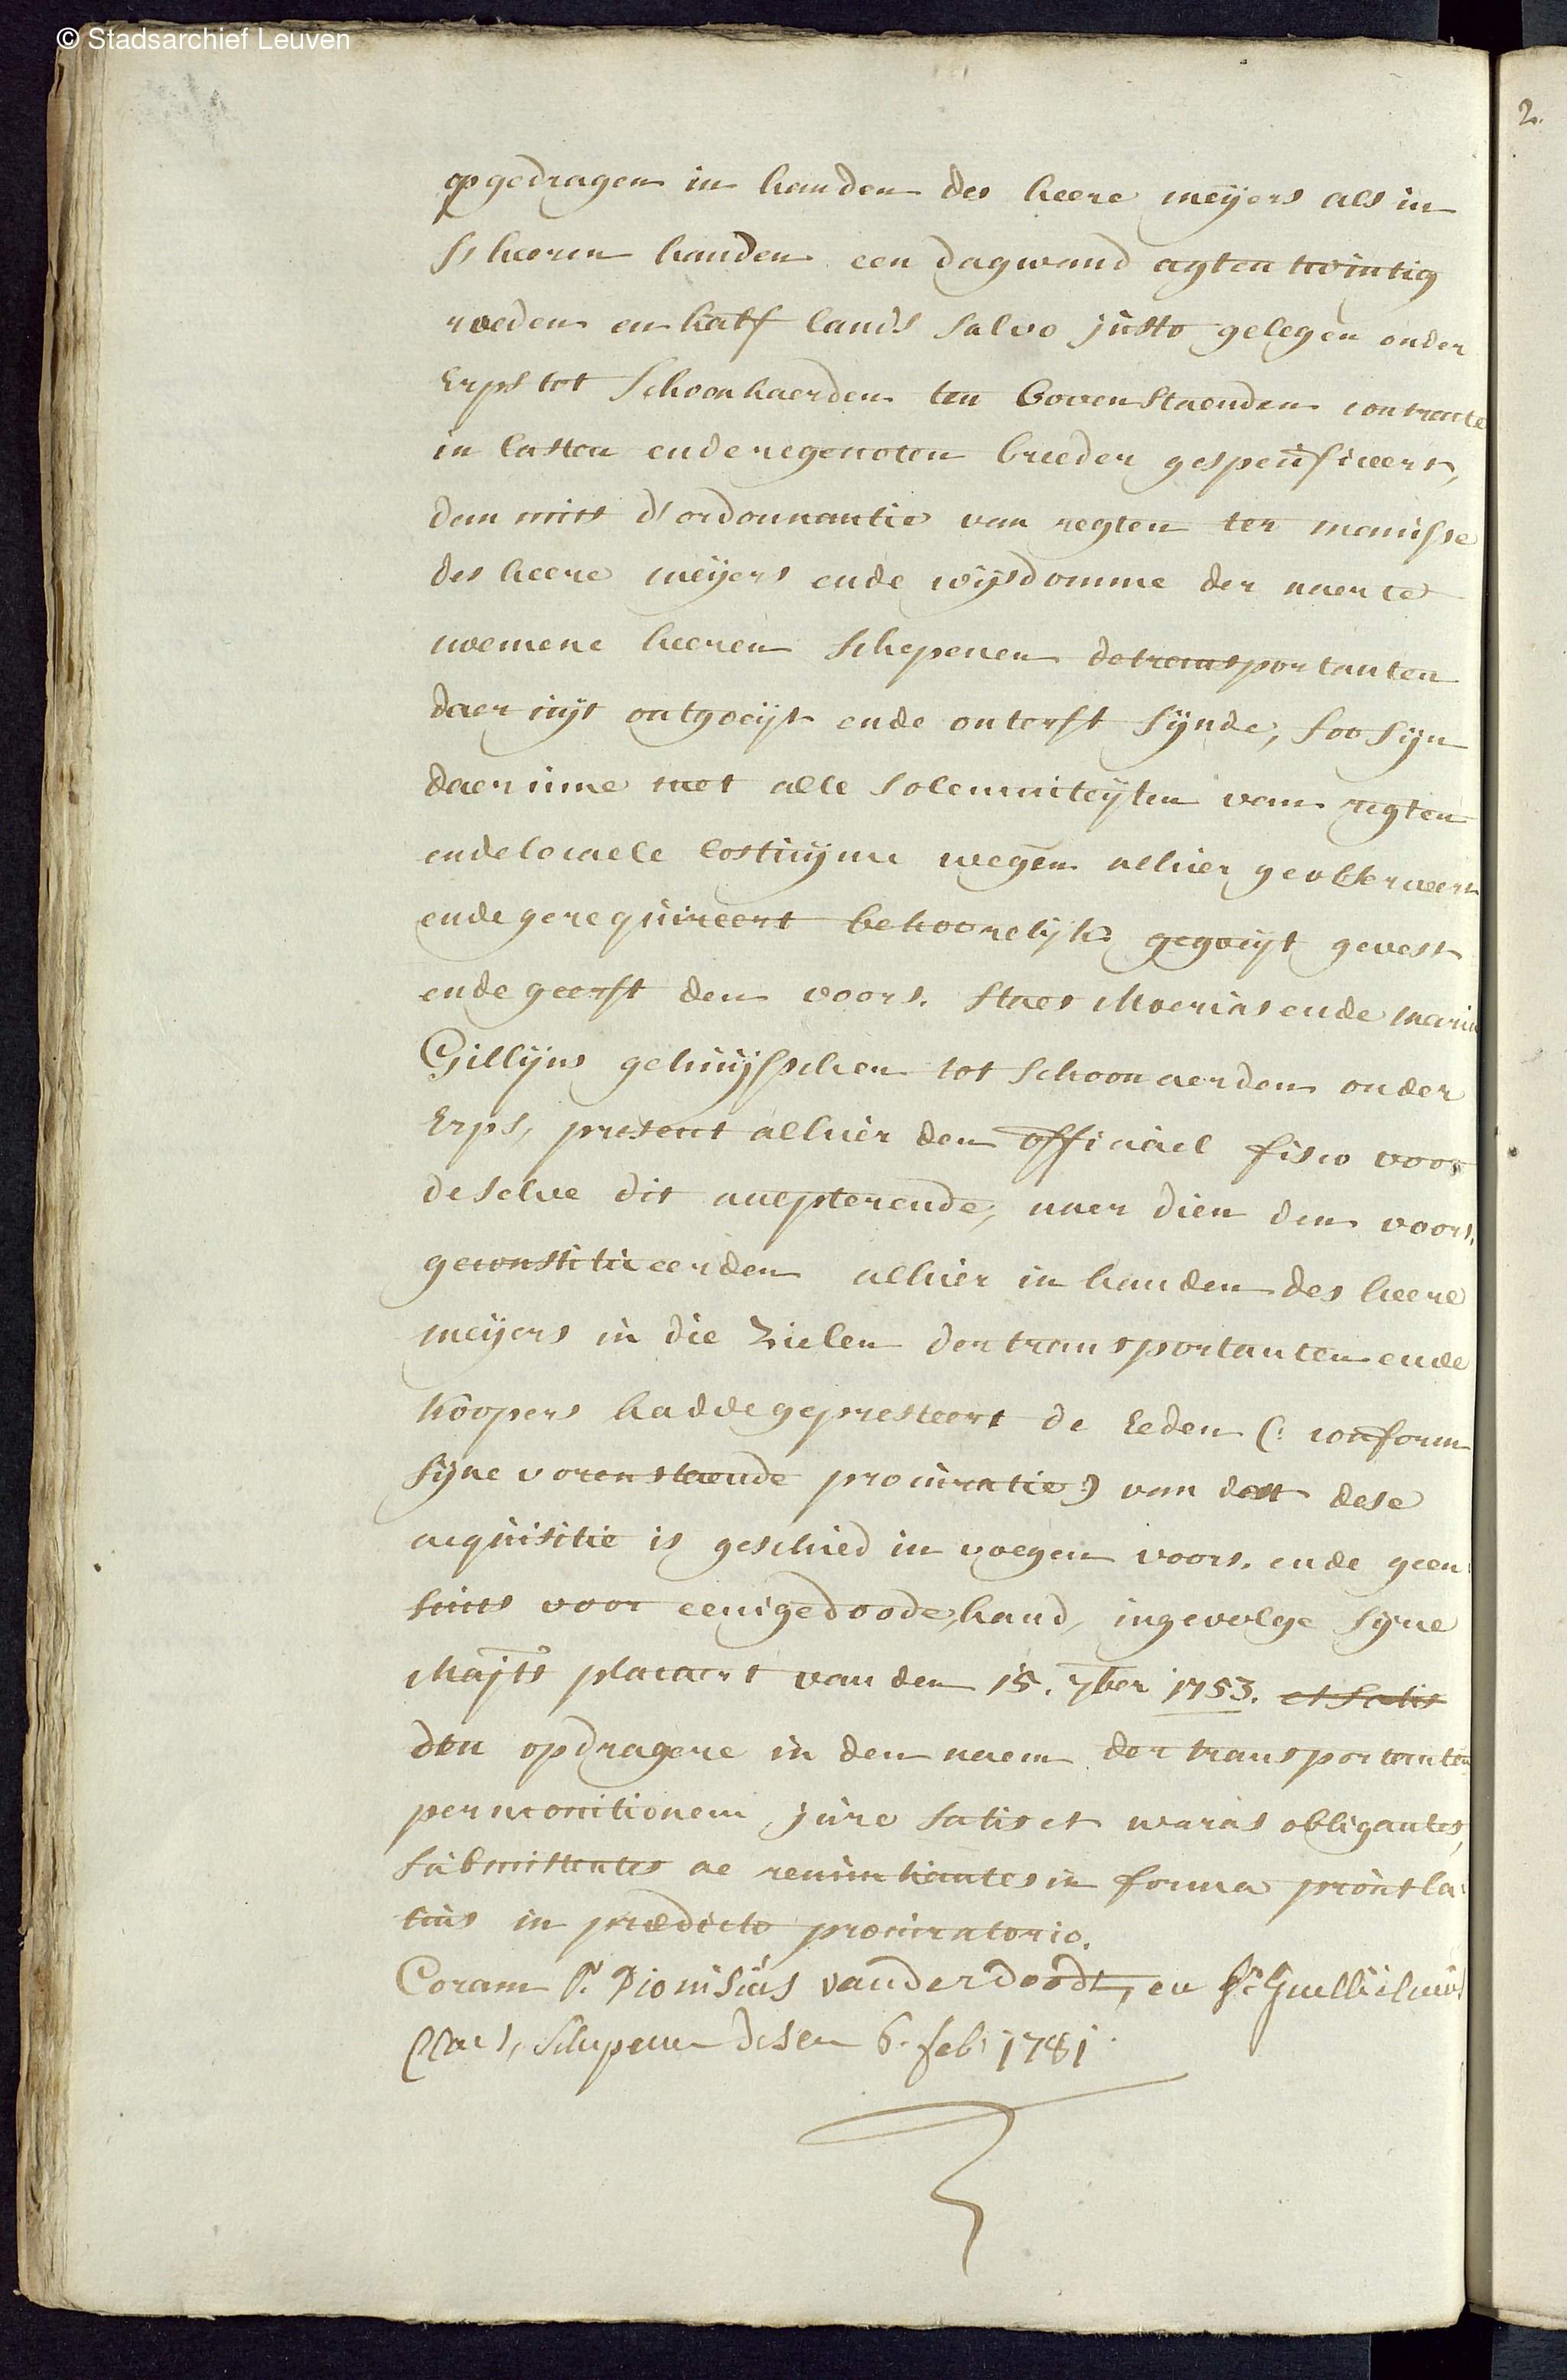 © Stadsarchief Leuven
2.
opgedragen in handen des heere meijers als in
s'heeren handen een dagwand agtentwintig
roeden en half lands salvo justo gelegen onder
Erps tot Schoonhaerden ten bovenstaenden contracte
in lasten ende regenoten breeder gespecificeert,
dan mits d'ordonnantie van regten ter manisse
des heere meijers ende wijsdomme der naer te
noemene heeren schepenen de transportanten
daer uijt ontgoeijt ende onterft sijnde, soo sijn
daer inne met alle solemniteijten van regten
ende locaele costuijme wegen alhier geobserveert
ende gerequireert behoorelijk gegoeijt gevest
ende geerft den voors. Staes Moerias ende Marie
Gillijns gehuijsschen tot Schoonaerden onder
Erps, present alhier den officiael fisco voor
deselve dit accepterende, naer dien den voors.
geconstitueerden alhier in handen des heere
meijers in die zielen der transportanten ende
koopers hadde gepresteert de eeden (: conform
sijne vorenstaende procuratie) van dat dese
acquisitie is geschied in voegen voors. ende geen
sints voor eenige doode, hand, ingevolge sijne
Majts placaert van den 15. 7ber 1753. et satis
den opdragere in den naem der transportanten
per monitionem jure satis et waras obligantes,
submittentes ac renuntiantes in forma prout la
tius in praedicto procuratorio.
Coram Sr. Dionisius vanderdoodt, en Sr. Guillielmus
Mars, schepenen desen 6. feb: 1781